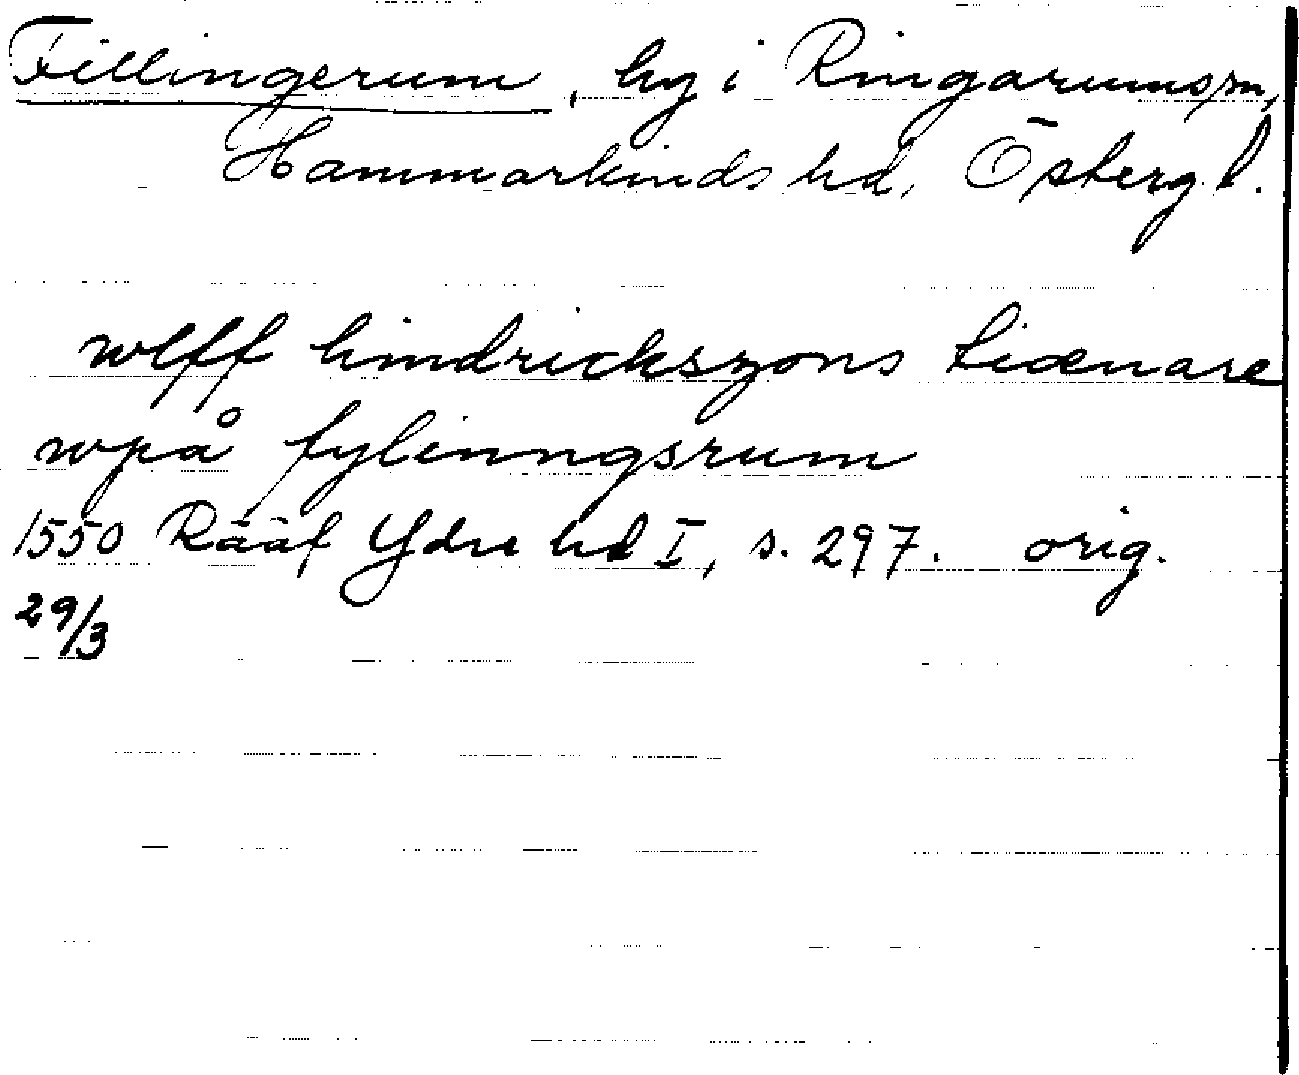 Fillingerum, by i Ringarums sn,
Hammarkinds hd, Östergl.
wlff hindrickszons tiænare
wpå fylinngsrum
1550 Rääf Ydre hd I, s. 297. orig.
29/3